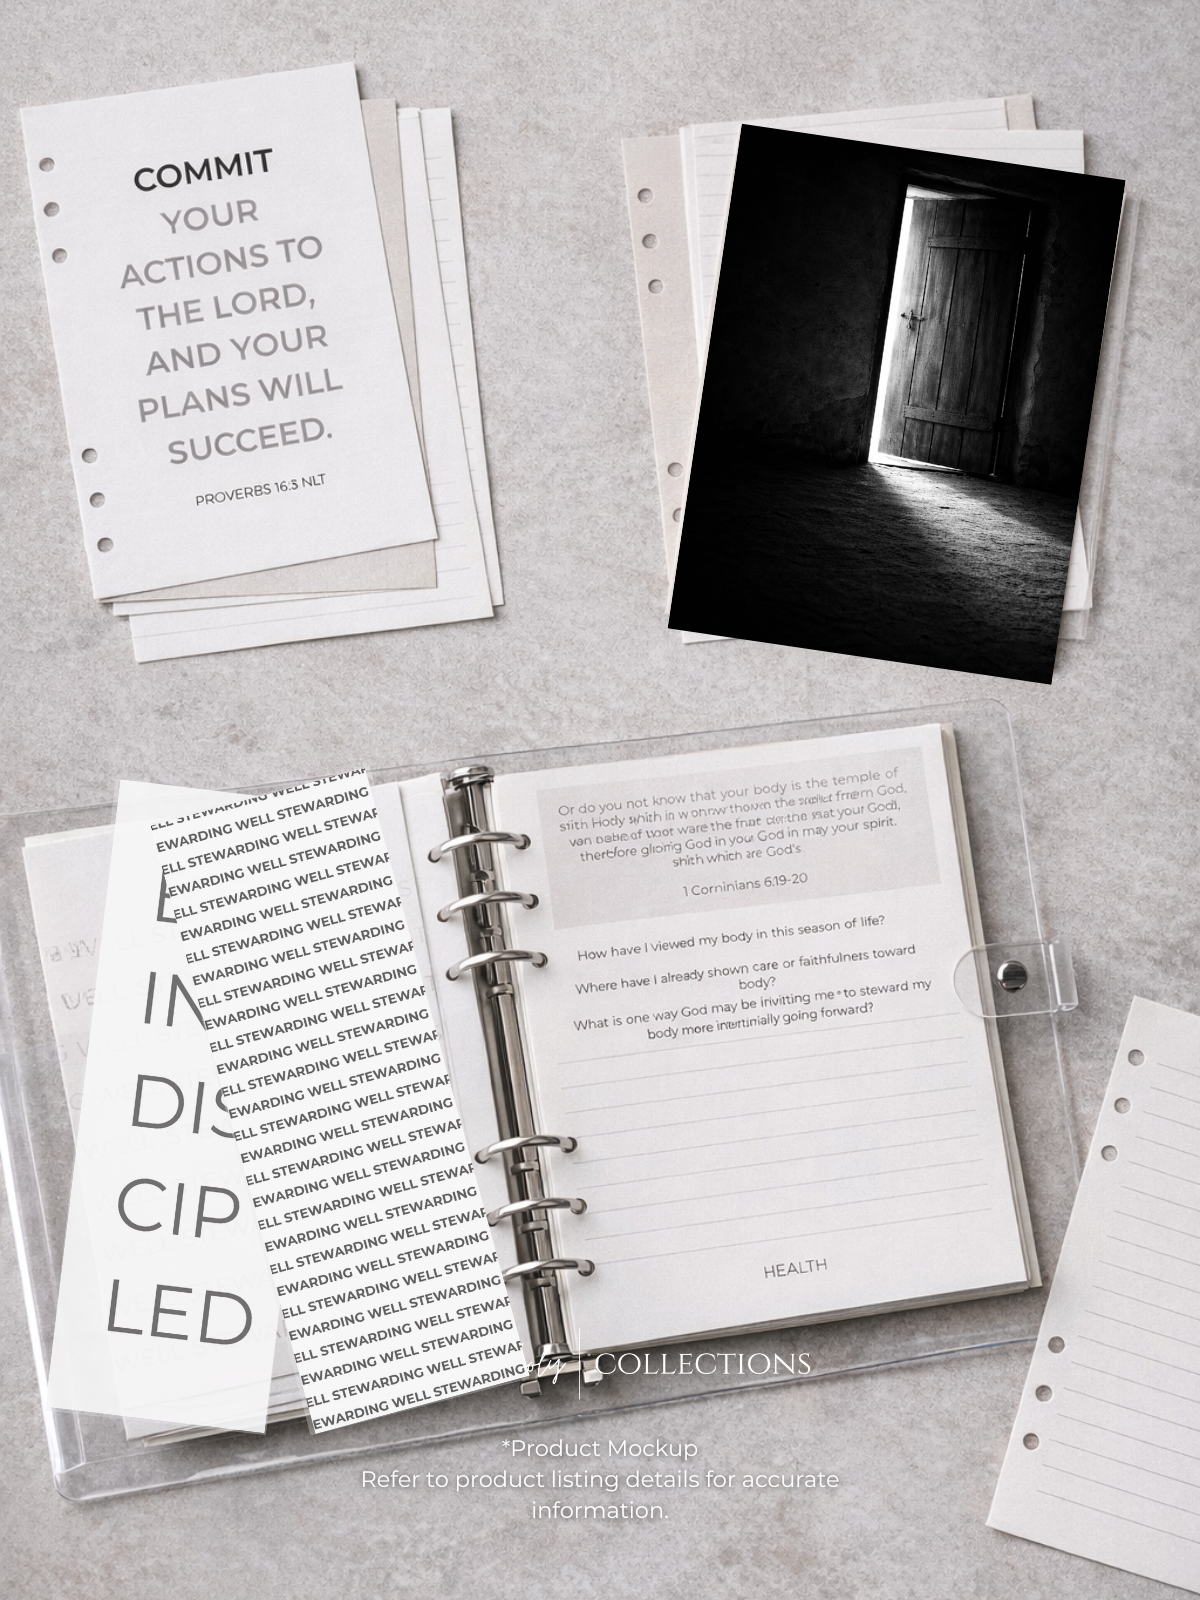 COMMIT
YOUR
ACTIONS TO
THE LORD,
AND YOUR
PLANS WILL
SUCCEED.
PROVERBS 16:3 NLT
E
IN
DIS
CIP
LED
ELL STEWARDING WELL STEWAR
EWARDING WELL STEWARDING
ELL STEWARDING WELL STEWAR
EWARDING WELL STEWARDING
ELL STEWARDING WELL STEWAR
EWARDING WELL STEWARDING
ELL STEWARDING WELL STEWAR
EWARDING WELL STEWARDING
ELL STEWARDING WELL STEWAR
EWARDING WELL STEWARDING
ELL STEWARDING WELL STEWAR
EWARDING WELL STEWARDING
ELL STEWARDING WELL STEWAR
EWARDING WELL STEWARDING
ELL STEWARDING WELL STEWAR
EWARDING WELL STEWARDING
ELL STEWARDING WELL STEWAR
EWARDING WELL STEWARDING
ELL STEWARDING WELL STEWAR
EWARDING WELL STEWARDING
ELL STEWARDING WELL STEWAR
EWARDING WELL STEWARDING
ELL STEWARDING WELL STEWAR
EWARDING WELL STEWARDING
ELL STEWARDING WELL STEWAR
EWARDING WELL STEWARDING
Or do you not know that your body is the temple of
in the your God,
God in your God in may your spirit.
which are God's
1 Corninians 6.19-20
How have I viewed my body in this season of life?
Where have I already shown care or faithfulness toward
body?
What is one way God may be me to steward my
body more going forward?
HEALTH
oly COLLECTIONS
*Product Mockup
Refer to product listing details for accurate
information.